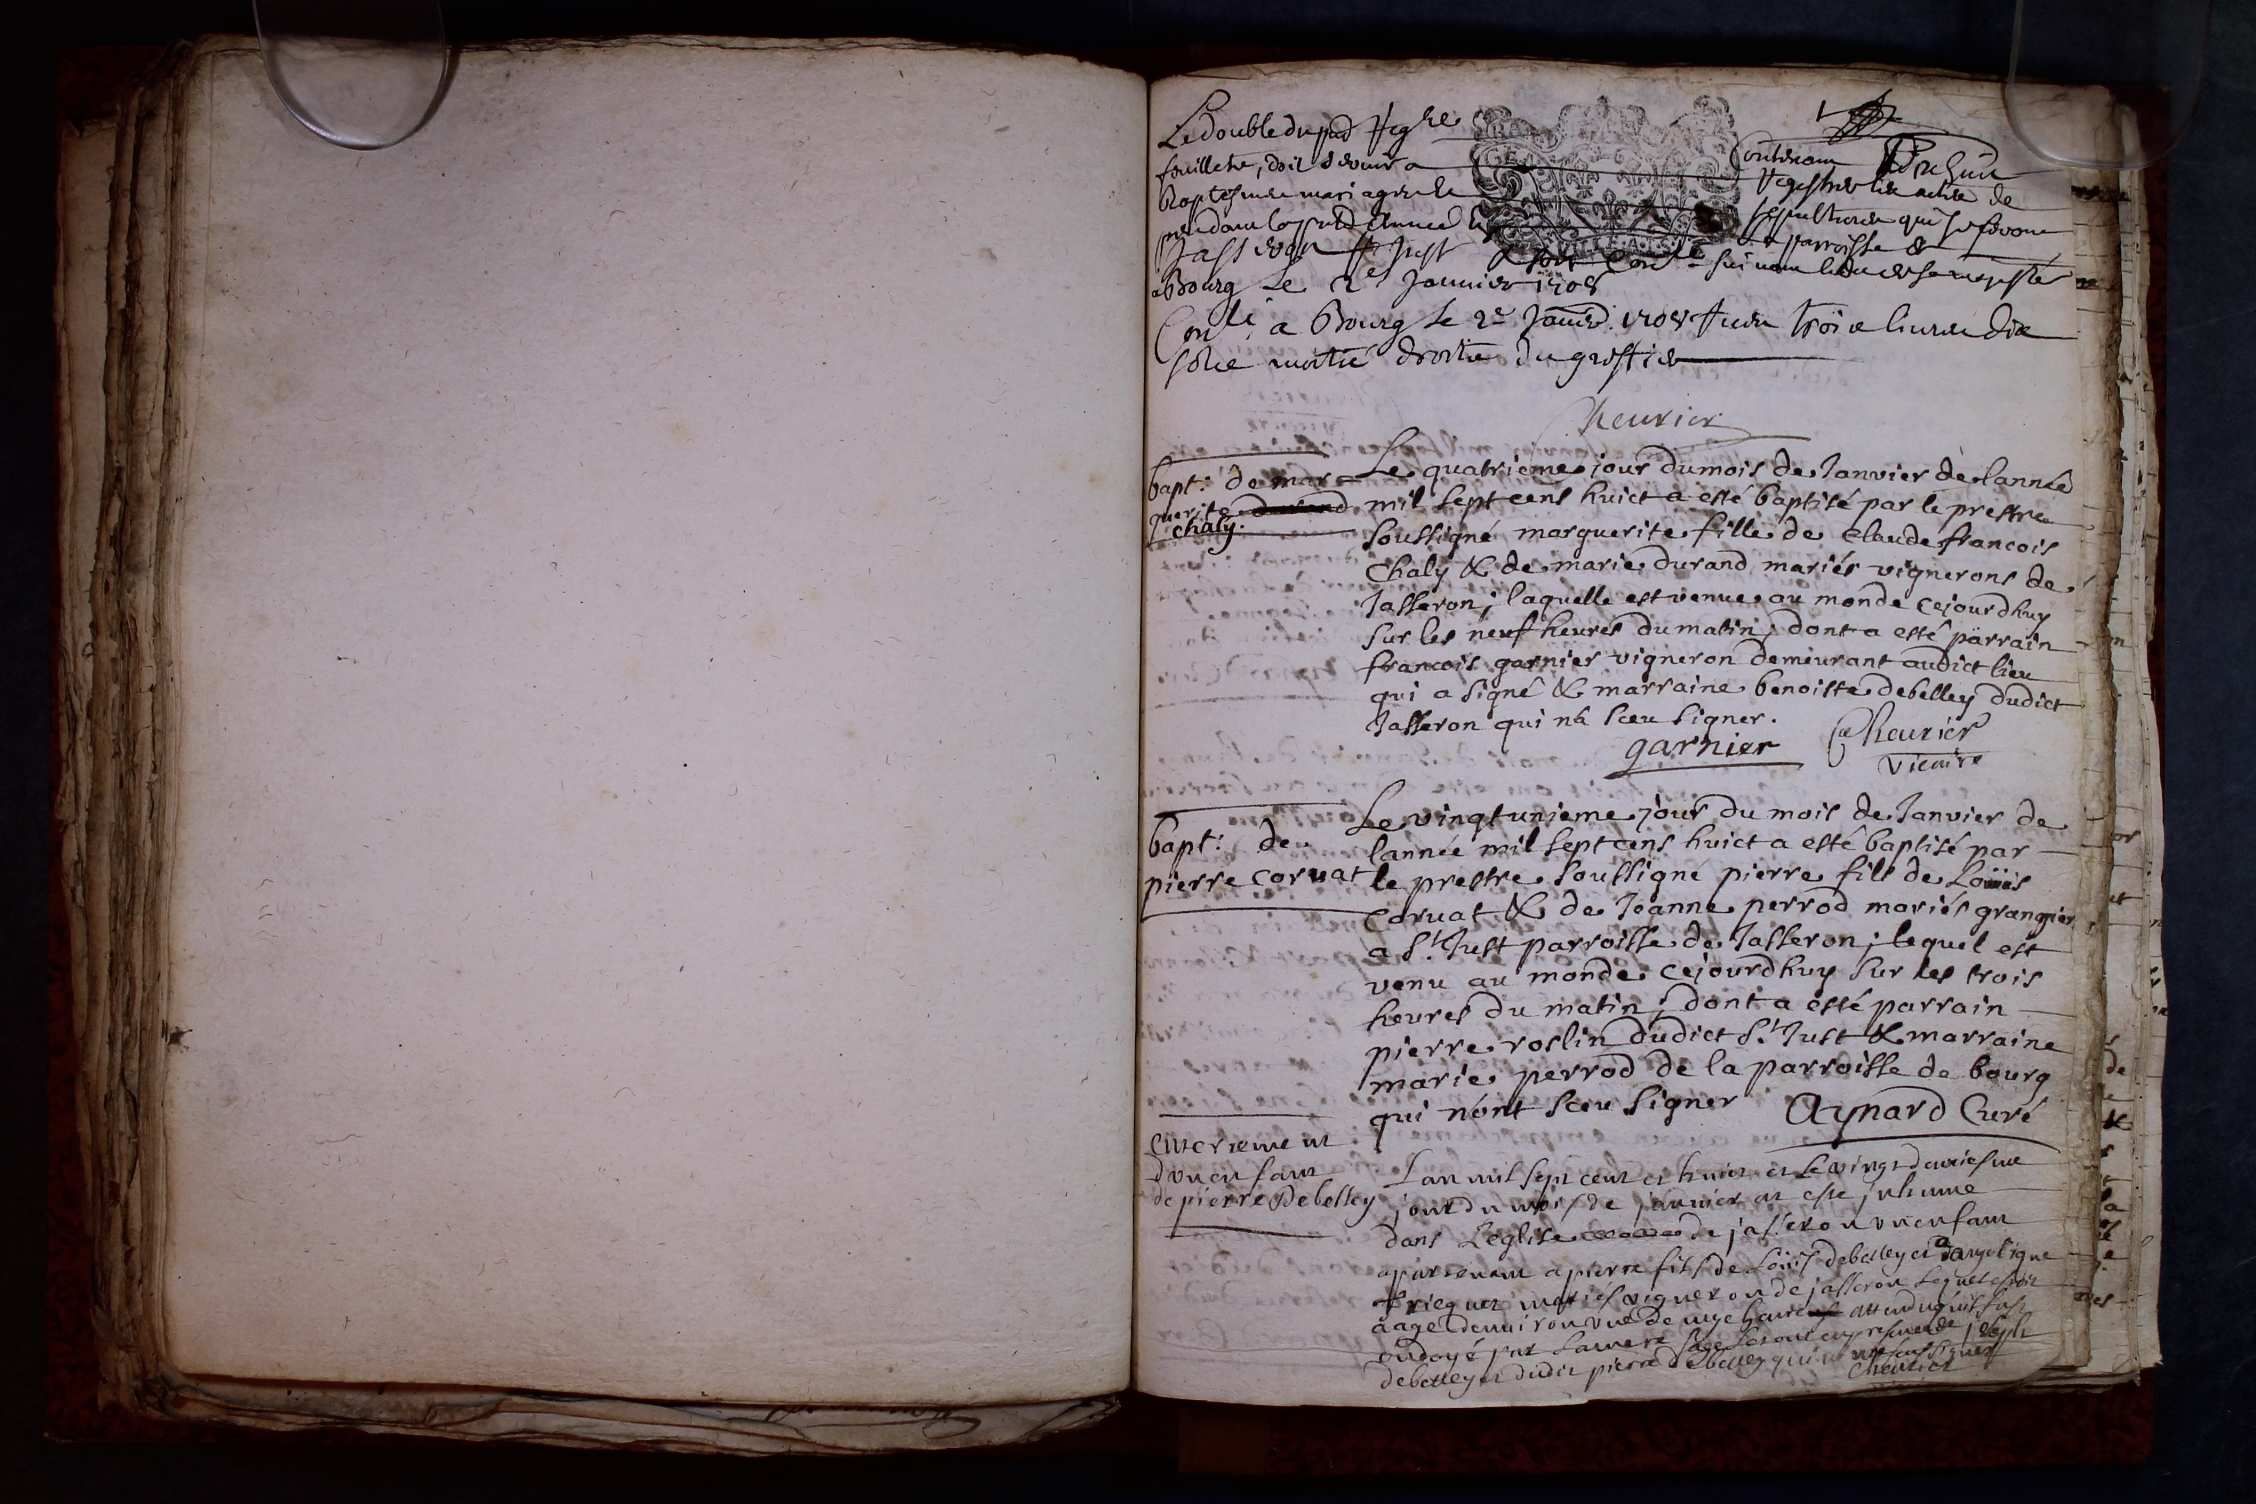 Le double du pnt Reg.re
Contenant
feuillets, doit servir a
registrer les actes de
Baptesmes mariages et
sepultures qui se feront
pendant la pnte année
parroisse de
Jasseron St Just
suivant l'edit de sa majesté
a Bourg le 2e Janvier 1708
Con.lé a Bourg le 2e Janvier 1708 trois livres dix
sols moitié droits du greffier
Cheurier
bapt: de mar
guerite durand
chaly.
Le quatrieme jour du mois de Janvier de lannée
mil sept cens huict a esté baptisé par le prestre
soussigné marguerite fille de claude francois
chaly & de marie durand mariés vignerons de
Jasseron; laquelle est venue au monde cejourdhuy
sur les neuf heures du matin; dont a esté parrain
francois garnier vigneron demeurant audict lieu
qui a signé & marraine benoiste debelley dudict
Jasseron qui na sceu signer.
garnier Cheurier
vicaire
bapt: de
pierre coruat
Le vingtunieme jour du mois de Janvier de
lannée mil sept cens huict a esté baptisé par
le prestre soussigné pierre fils de Loüis
coruat & de Joanne perrod mariés grangier
a St. Just parroisse de Jasseron; lequel est
venu au monde cejourdhuy sur les trois
heures du matin; dont a esté parrain
pierre roslin dudict St. Just & marraine
marie perrod de la parroisse de bourg
qui nont sceu signer Aynard Curé
enterrement
dun enfant
de pierre Debelley
Lan mil sept cent et huict et le vingt deuxiesme
jour du mois de janvier at esté inhumé
dans Leglise de jasseron un enfant
apartenant a pierre fils de Loüis debelley et dangeligue
mariés vigneron de jasseron Lequel estoit
aagé denviron une demye heure attendu quil fust
ondoyé par La mere sage presence de joseph
debelley et dudit pierre debelley qui
Cheurier